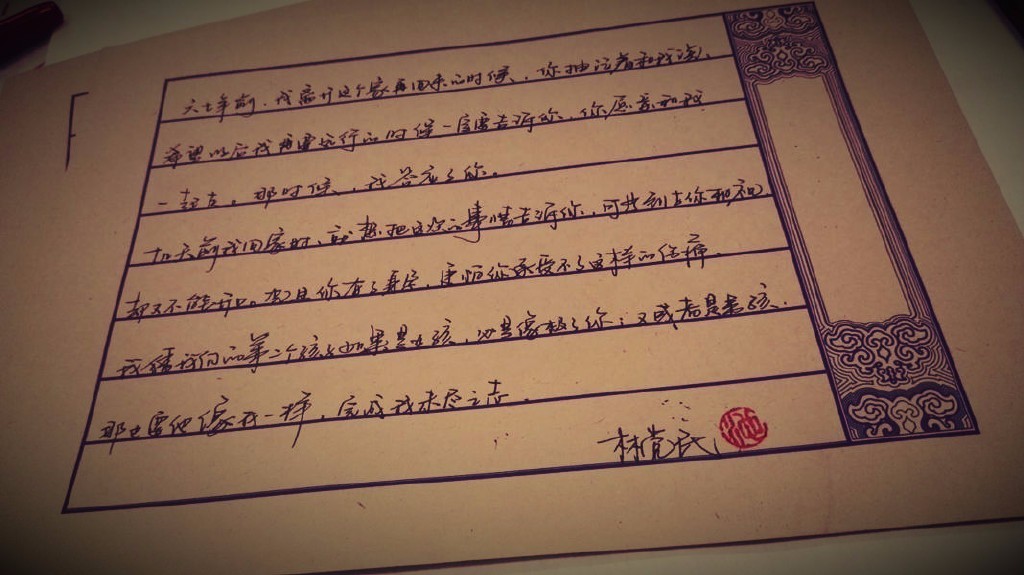 六七年前，我离开这个家再回来的时候，你抽泣着和我说，
希望以后我再要远行的时候一定要告诉你，你愿意和我
一起去。那时候，我答应了你。
十几天前我回家时，就想把这次的事情告诉你，可我到去你面前
却又不能开口。加且你有了身孕，更怕你承受不了这样的悲痛。
我猜我们的第二个孩子如果是女孩，必是像极了你；又或者是男孩，
那也要他像我一样，完成我未尽之志。
林觉民